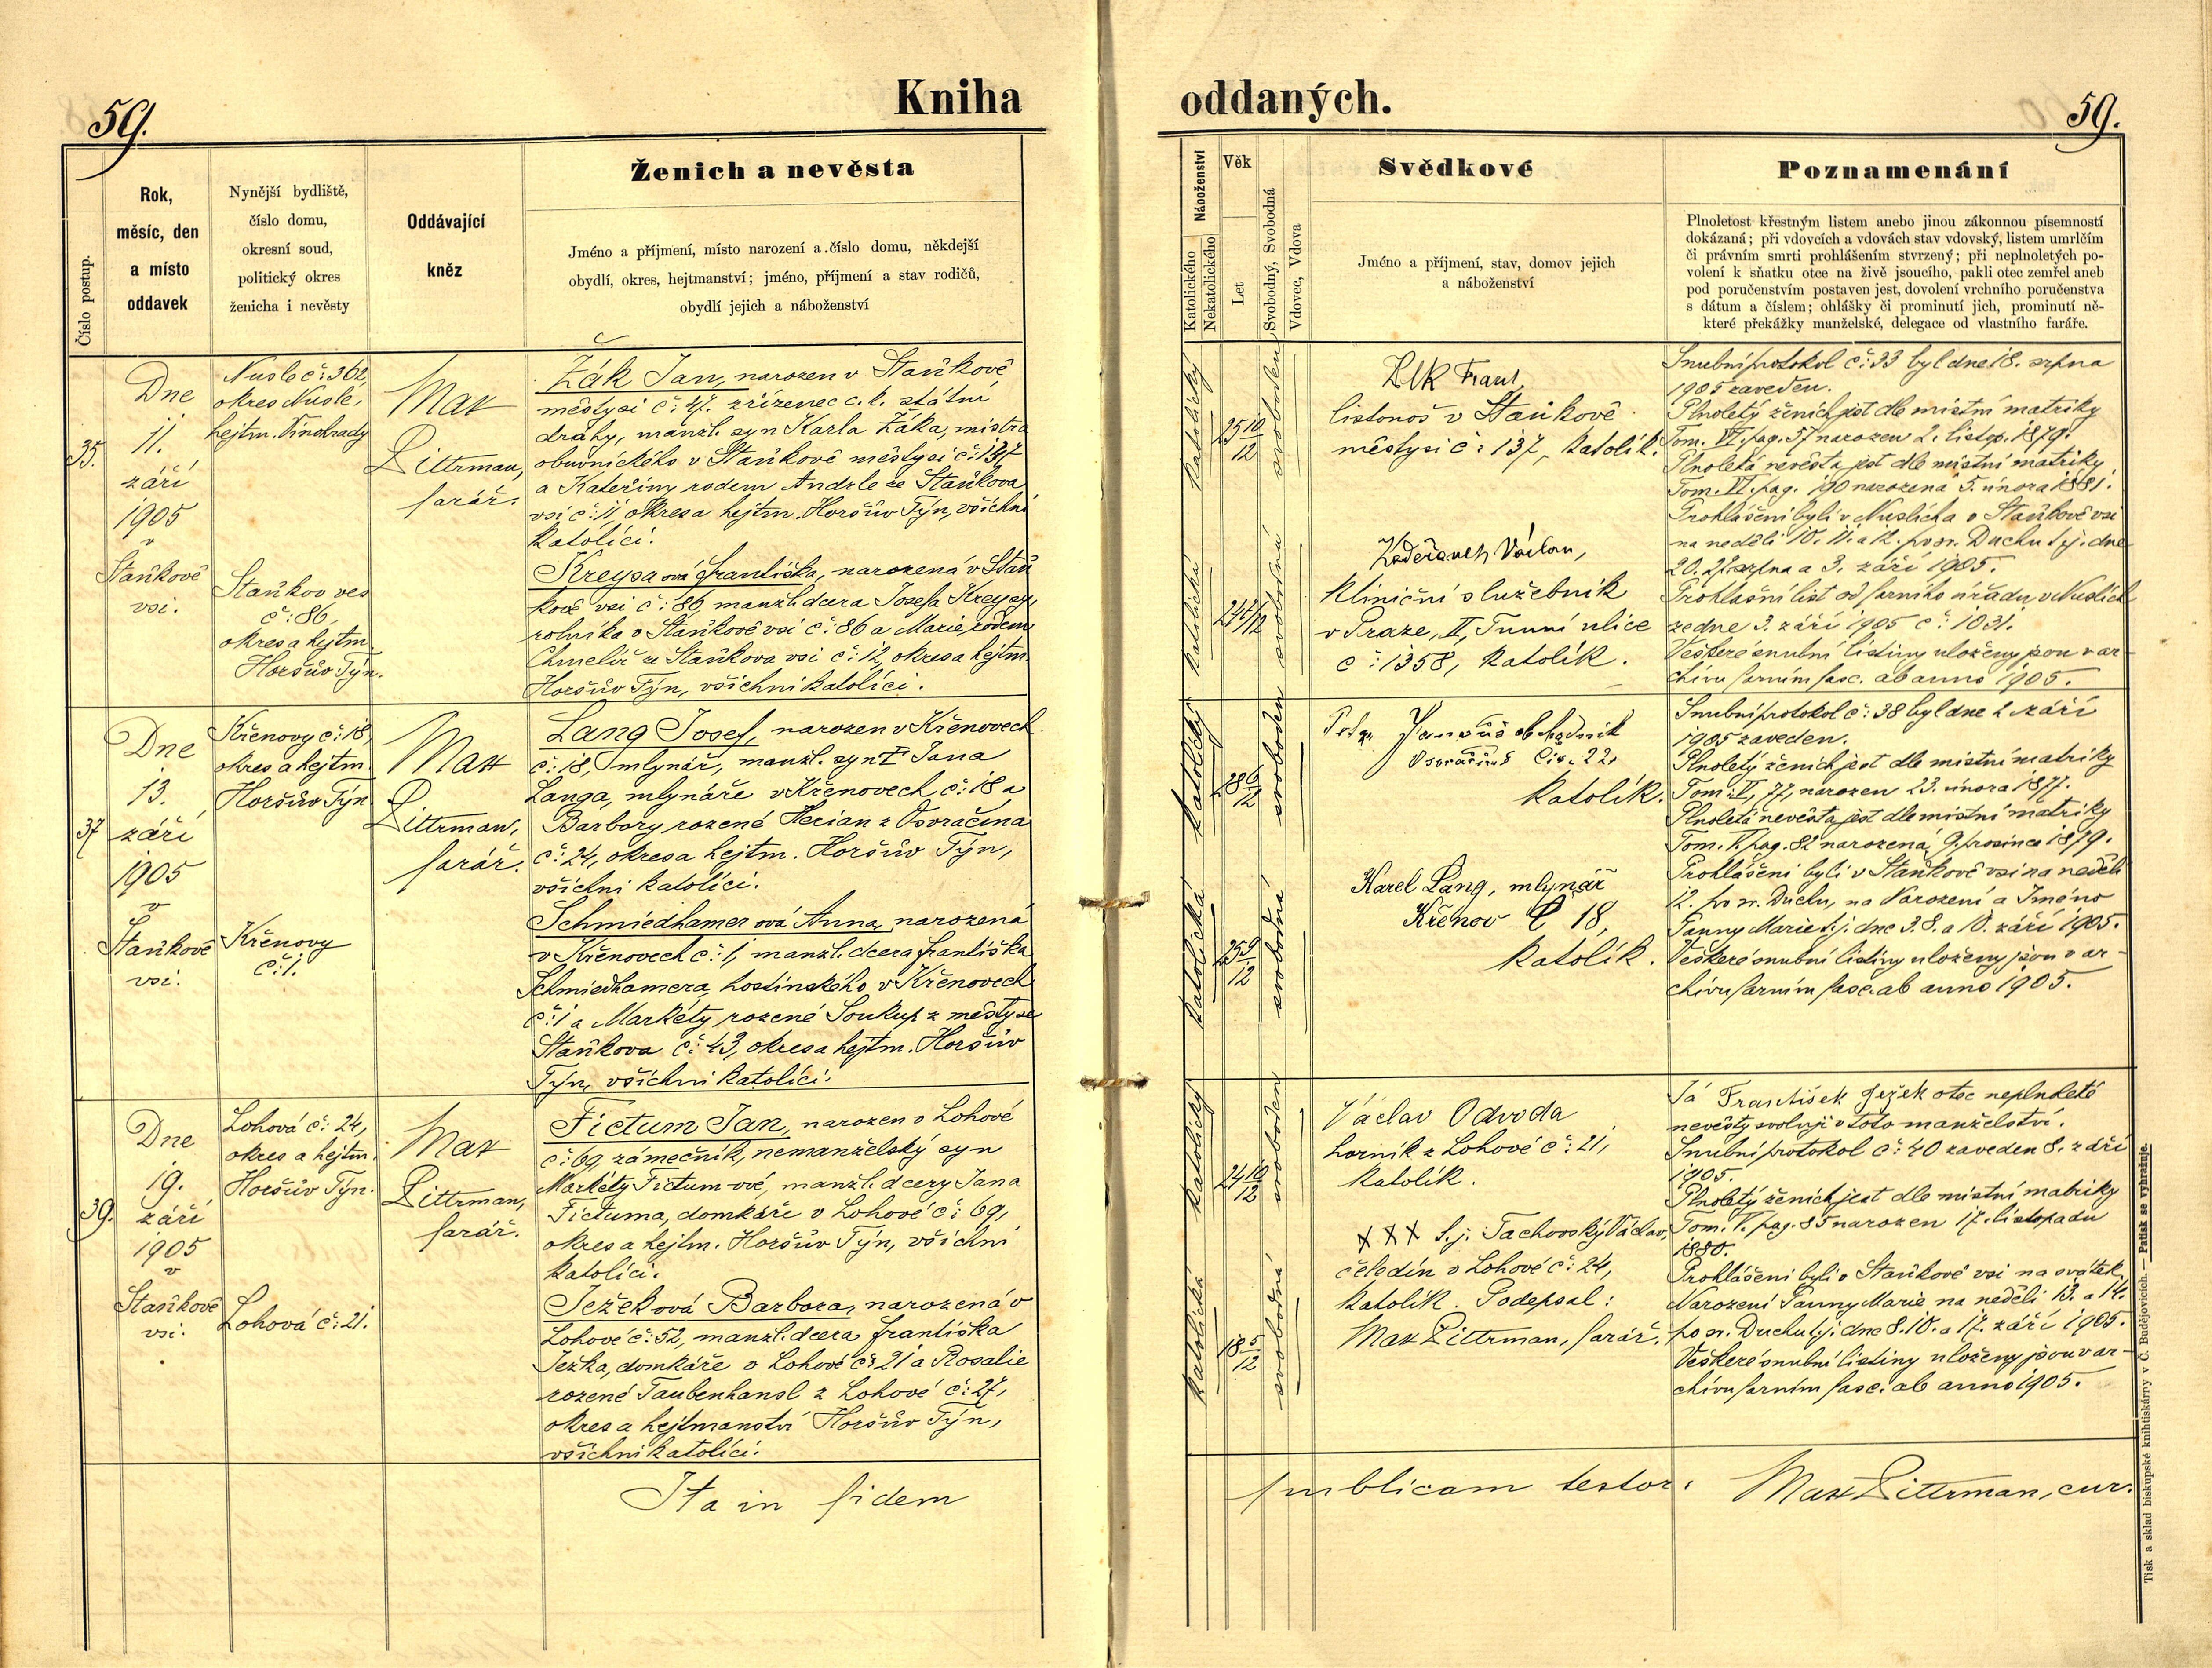 59.
Kniha
Číslo postup.
Rok,
měsíc, den
a místo
oddavek
Nynější bydliště,
číslo domu,
okresní soud,
politický okres
ženicha i nevěsty
Oddávající
kněz
Ženich a nevěsta
Jméno a příjmení, místo narození a číslo domu, někdejší
obydlí, okres, hejtmanství; jméno, příjmení a stav rodičů,
obydlí jejich a náboženství
35.
Dne
11.
září
1905
v
Staňkově
vsi.
Nusle č: 362,
okres Nusle,
hejtm. Vinohrady
Staňkov ves
č: 86,
okres a hejtm.
Horšův Týn.
Max
Littrman,
farář.
Žák Jan, narozen v Staňkově,
městysi č: 47. zřízenec c. k. státní
dráhy, manžl. syn Karla Žáka, mistra
obuvnického v Staňkově městysi č: 137
a Kateřiny rodem Andrle ze Staňkova
vsi č: 1, okres a hejtm. Horšův Týn, všichni
katolíci.
Kreysa ová Františka, narozená v Staň
kově vsi č: 86, manžl. dcera Josefa Kreysy,
rolníka v Staňkově vsi č: 86 a Marie, rodem
Chmelíř ze Staňkova vsi č: 12, okres a hejtm.
Horšův Týn, všichni katolíci.
37
Dne
13.
září
1905
v
Staňkově
vsi.
Křenovy č: 18,
okres a hejtm.
Horšův Týn
Křenovy
č: 1.
Max
Littrman,
farář.
Lang Josef, narozen v Křenovech
č: 18, mlynář, manžl. syn † Jana
Langa, mlynáře v Křenovech č: 18 a
Barbory rozené Herian z Osvračína
č: 24, okres a hejtm. Horšův Týn,
všichni katolíci.
Schmiedhamer ová Anna, narozená
v Křenovech č: 1, manžl. dcera Františka
Schmiedhamera, hostinského v Křenovech
č: 1 a Markéty rozené Soukup z městyse
Staňkova č: 43, okres a hejtm. Horšův
Týn, všichni katolíci.
39.
Dne
19.
září
1905
v
Staňkově
vsi.
Lohová č: 24,
okres a hejtm.
Horšův Týn.
Lohová č: 21.
Max
Littrman,
farář.
Fictum Jan, narozen v Lohové
č: 69, zámečník, nemanželský syn
Markéty Fictum-ové, manžl. dcery Jana
Fictuma, domkáře v Lohové č: 69,
okres a hejtm. Horšův Týn, všichni
katolíci.
Ježek ová Barbora, narozená v
Lohové č: 52, manžl. dcera Františka
Ježka, domkáře v Lohové č: 21 a Rosalie
rozené Taubenhansl z Lohové č: 27,
okres a hejtmanství Horšův Týn,
všichni katolíci.
Ita in fidem
oddaných.
59.
Náboženství
Katolického
Nekatolického
Věk
Let
Svobodný, Svobodná
Vdovec, Vdova
Svědkové
Jméno a příjmení, stav, domov jejich
a náboženství
Poznamenání
Plnoletost křestným listem anebo jinou zákonnou písemností
dokázaná; při vdovcích a vdovách stav vdovský, listem umrlčím
či právním smrti prohlášením stvrzený; při neplnoletých po-
volení k sňatku otce na živě jsoucího, pakli otec zemřel aneb
pod poručenstvím postaven jest, dovolení vrchního poručenstva
s dátum a číslem; ohlášky či prominutí jich, prominutí ně-
které překážky manželské, delegace od vlastního faráře.
katolický
25 10/12
svoboden
Frant.
listonoš v Staňkově
městysi č: 137, katolík.
katolická
24 7/12
svobodná
Václav,
Kliniční služebník
v Praze, II, ulice
č: 1358, katolík.
Snubní protokol č: 33 byl dne 18. srpna
1905 zaveden.
Plnoletý ženich jest dle místní matriky
Tom. VI. pag. 57 narozen 2. listop. 1879.
Plnoletá nevěsta jest dle místní matriky
Tom. VI. pag. 190 narozená 5. února 1881.
Prohlášeni byli v Nuslích a v Staňkově vsi
na neděli 10. 11. a 12. po sv. Duchu t. j. dne
20. 27. srpna a 3. září 1905.
Prohlašní list od farního úřadu v Nuslích
ze dne 3. září 1905 č: 1031.
Veškeré snubní listiny uloženy jsou v ar-
chivu farním fasc. ab anno 1905.
katolický
28 6/12
svoboden
Petr obchodník
Osvračíně čís. 22,
katolík.
katolická
25 9/12
svobodná
Karel Lang, mlynář
Křenov Č 18,
katolík.
Snubní protokol č: 38 byl dne 2. září
1905 zaveden.
Plnoletý ženich jest dle místní matriky
77, narozen 23. února 1877.
Plnoletá nevěsta jest dle místní matriky
Tom. V. pag. 82 narozená 9. prosince 1879.
Prohlášeni byli v Staňkově vsi na neděli
12. po sv. Duchu, na Narození a Jméno
Panny Marie t. j. dne 3. 8. a 10. září 1905.
Veškeré snubní listiny uloženy jsou v ar-
chivu farním fasc. ab anno 1905.
katolický
24 10/12
svoboden
Václav Odvoda
horník z Lohové č: 21,
katolík.
katolická
18 5/12
svobodná
XXX t. j. Tachovský Václav,
čeledín v Lohové č: 24,
katolík. Podepsal:
Max Littrman, farář.
Já František Ježek otec neplnoleté
nevěsty svoluji v toto manželství.
Snubní protokol č: 40 zaveden 8. září
1905.
Plnoletý ženich jest dle místní matriky
Tom. V. pag. 85 narozen 17. listopadu
1880.
Prohlášeni byli v Staňkově vsi na svátek
Narození Panny Marie na neděli 13. a 14.
po sv. Duchu t. j. dne 8. 10. a 17. září 1905.
Veškeré snubní listiny uloženy jsou v ar-
chivu farním fasc. ab anno 1905.
publicam testor: Max Littrman, cur.
Tisk a sklad biskupské knihtiskárny v Č. Budějovicích. — Patisk se vyhražuje.